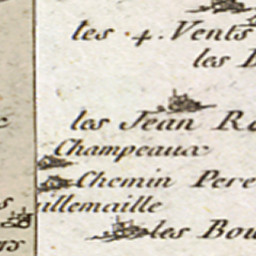 les 4. Vents
les
les Jean
Champeaux
Chemin Pere
illemaille
les Bou